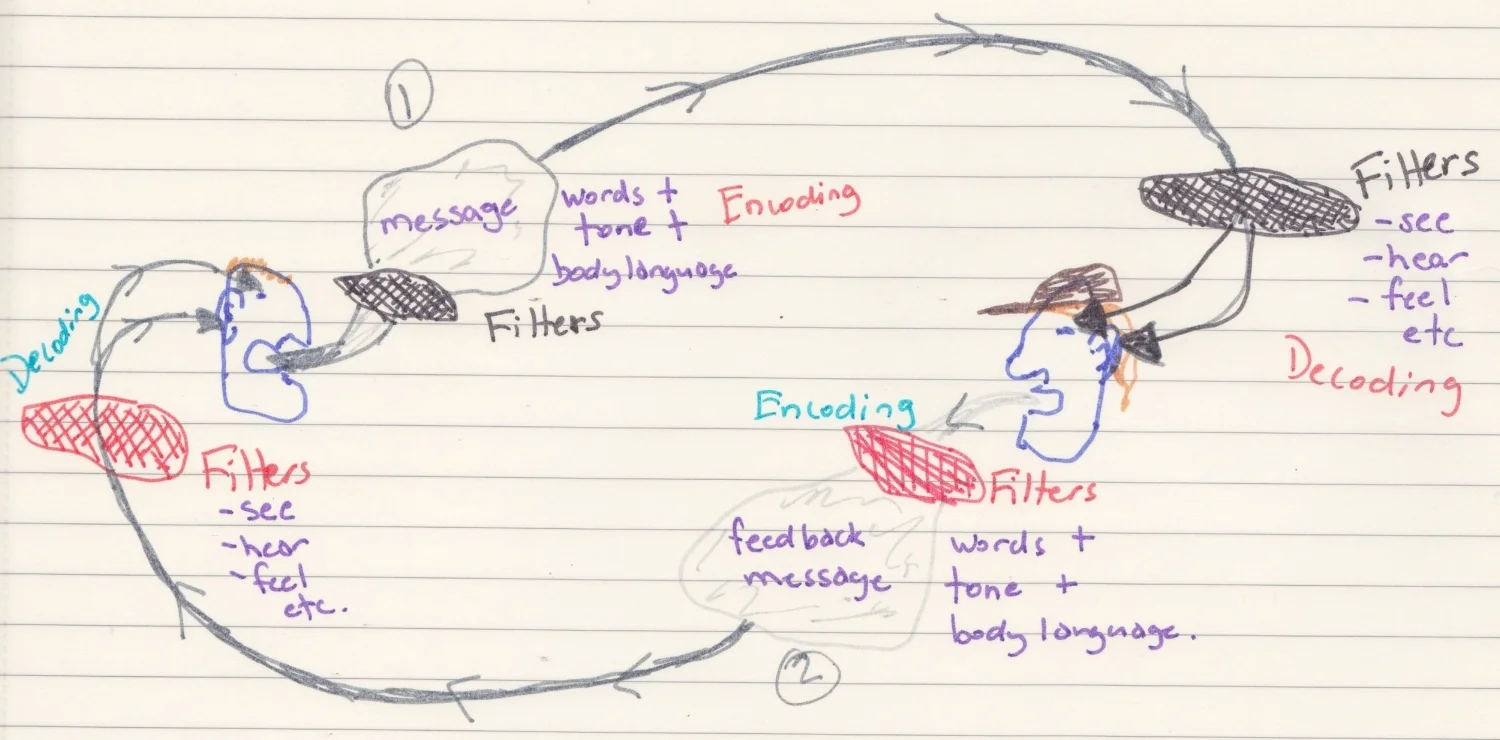 1
message
words +
tone +
body language
Encoding
Filters
Filters
-see
-hear
-feel
etc
Decoding
Encoding
Filters
feedback
message
words +
tone +
body language.
2
Filters
-see
-hear
-feel
etc.
Decoding